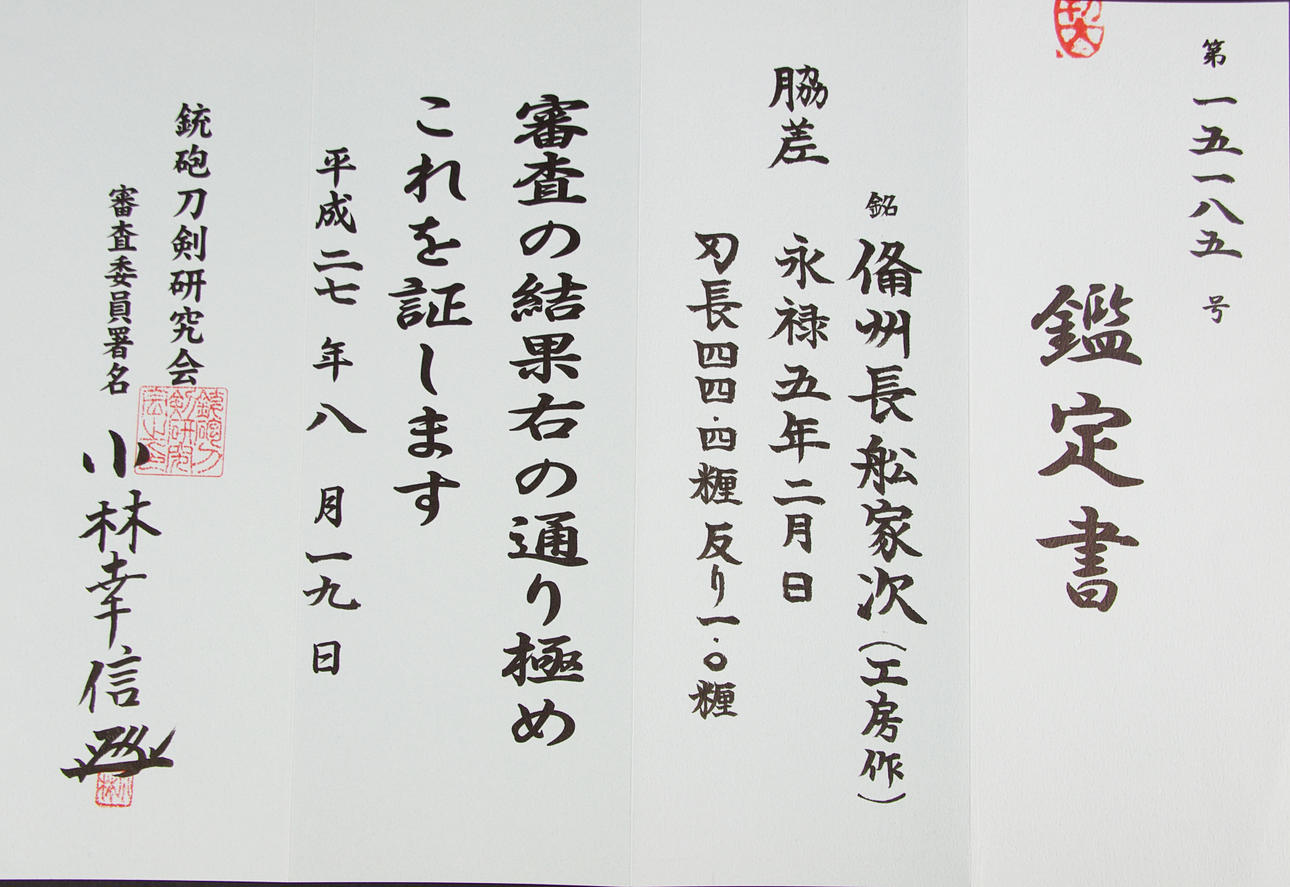 第一五一八五号
鑑定書
脇差
銘 備州長舩家次(工房作)
永禄五年二月日
刃長四四.四糎 反り一.〇糎
審査の結果右の通り極め
これを証します
平成二七年八月一九日
銃砲刀剣研究会
審査委員署名 小林幸信